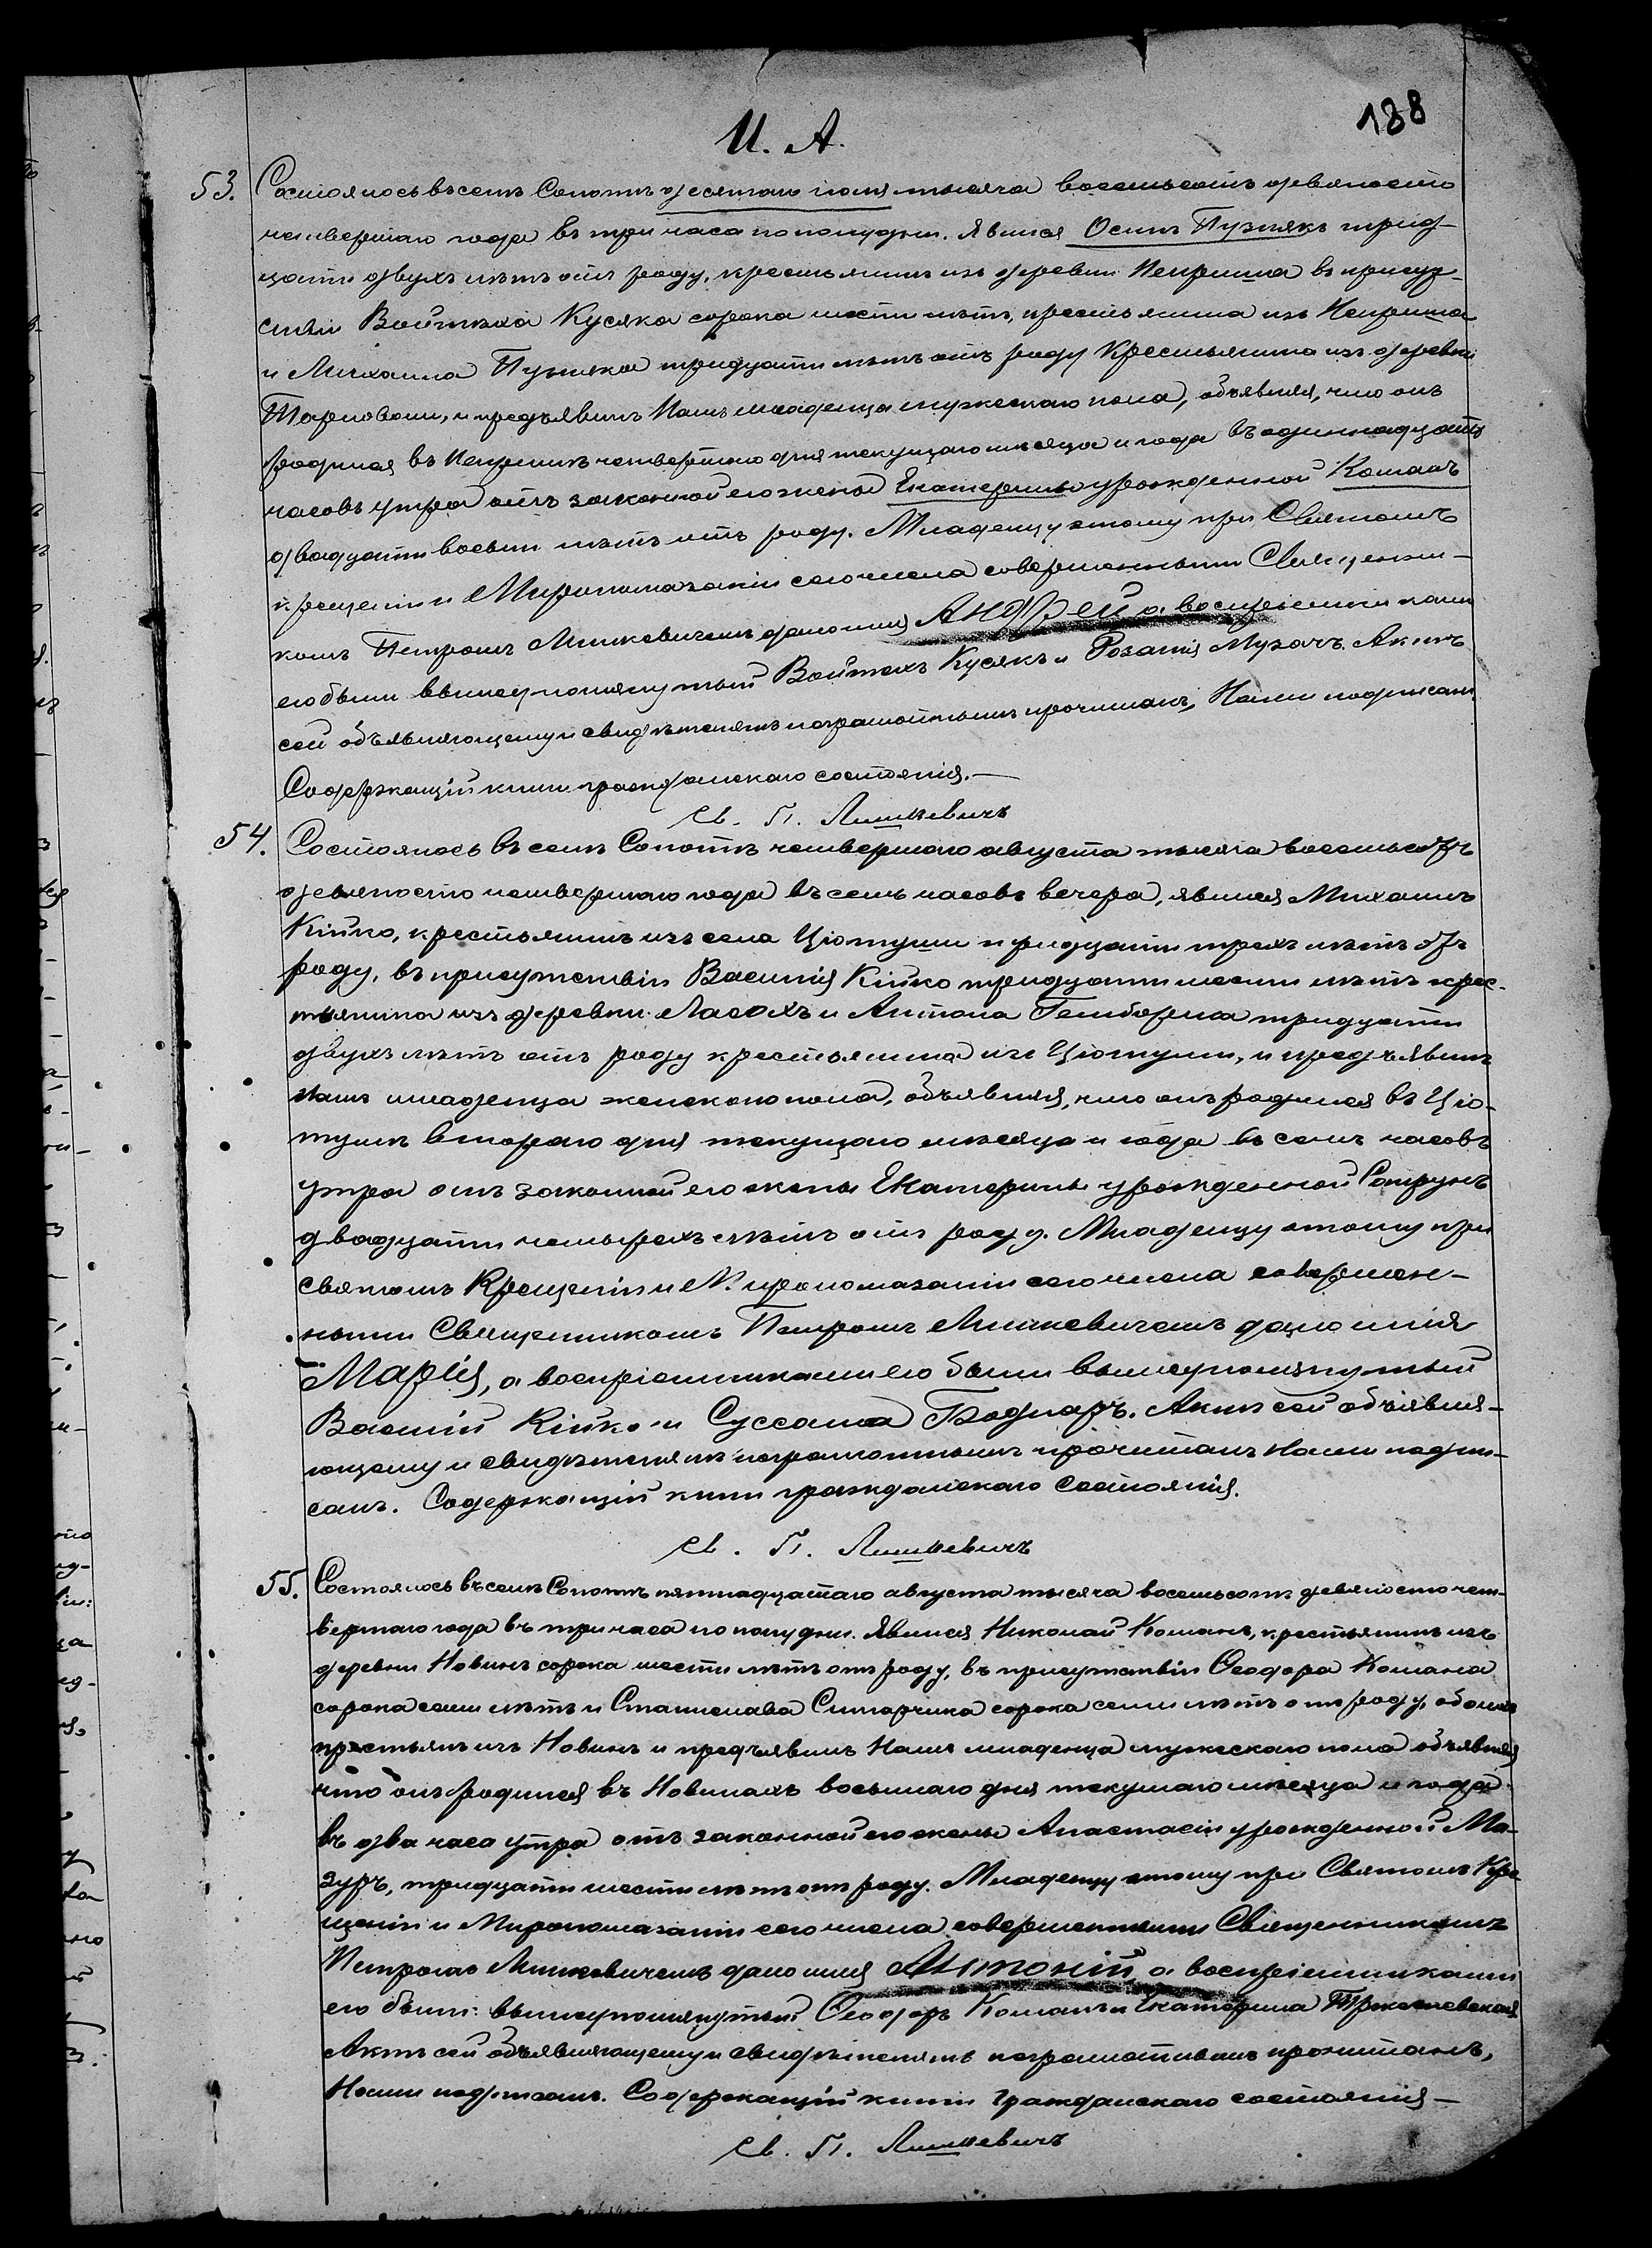 188
И. А.
53. Состоялось въ семъ Сопотѣ десятаго іюля тысяча восемьсотъ девяносто
четвертаго года въ три часа по полудни. Явился Осипъ Пузнякъ трид-
цати двухъ лѣтъ отъ роду, крестьянинъ изъ деревни Неприша въ присут-
ствіи Войтѣха Кусяка сорока шести лѣтъ, крестьянина изъ Неприша
и Михаила Пузняка тридцати лѣтъ отъ роду крестьянина изъ деревни
и предъявилъ Намъ младенца мужескаго пола, объявляя, что онъ
родился въ Непришѣ четвертаго дня текущаго мѣсяца и года въ одиннадцать
часовъ утра отъ законной его жены Екатерины урожденной Команъ
двадцати восьми лѣтъ отъ роду. Младенцу этому при Святомъ
крещеніи и Миропомазаніи сего числа совершенными Священни-
комъ Петромъ Лишкевичемъ дано имя Андрей а воспріемниками
его были вышеупомянутый Войтѣхъ Кусякъ и Розалія Музачъ. Актъ
сей объявляющему и свидѣтелямъ неграмотнымъ прочитанъ, Нами подписанъ.
Содержащій книги гражданскаго состоянія.—
Св. П. Лишкевичъ
54. Состоялось въ семъ Сопотѣ четвертаго августа тысяча восемьсотъ
девяносто четвертаго года въ семь часовъ вечера, явился Михаилъ
Кійко, крестьянинъ изъ села Цотуши тридцати трехъ лѣтъ отъ
роду, въ присутствіи Василія Кійко тридцати шести лѣтъ крес-
тьянина изъ деревни Ласохъ и Антона тридцати
двухъ лѣтъ отъ роду крестьянина изъ Цотуши, и предъявилъ
Намъ младенца женскаго пола, объявляя, что онъ родился въ Цо-
тушѣ втораго дня текущаго мѣсяца и года въ семь часовъ
утра отъ законной его жены Екатерины урожденной Сапрунъ
двадцати четырехъ лѣтъ отъ роду. Младенцу этому при
святомъ Крещеніи и Миропомазаніи сего числа совершен-
ными Священникомъ Петромъ Лишкевичемъ дано имя
Марія, а воспріемниками его были вышеупомянутый
Василій Кійко и Суссанна Боднаръ. Актъ сей объявля-
ющему и свидѣтелямъ неграмотнымъ прочитанъ Нами подпи-
санъ. Содержащій книги гражданскаго состоянія.
Св. П. Лишкевичъ
55. Состоялось въ семъ Сопотѣ пятнадцатаго августа тысяча восемьсотъ девяносто чет-
вертаго года въ три часа по полудни. Явился Николай Команъ, крестьянинъ изъ
деревни Новинъ сорока шести лѣтъ отъ роду, въ присутствіи Ѳеодора Комана
сорока семи лѣтъ и Станислава Ситарчика сорока семи лѣтъ отъ роду, обоихъ
крестьянъ изъ Новинъ и предъявилъ Намъ младенца мужескаго пола объявляя
что онъ родился въ Новинахъ восьмаго дня текущаго мѣсяца и года
въ два часа утра отъ законной его жены Анастасіи урожденной Ма-
зуръ, тридцати шести лѣтъ отъ роду. Младенцу этому при Святомъ Кре-
щеніи и Миропомазаніи сего числа совершенными Священникомъ
Петромъ Лишкевичемъ дано имя Антоній а воспріемниками
его были: вышеупомянутый Ѳеодоръ Команъ и Екатерина
Актъ сей объявляющему и свидѣтелямъ неграмотнымъ прочитанъ,
Нами подписанъ. Содержащій книги гражданскаго состоянія—
Св. П. Лишкевичъ